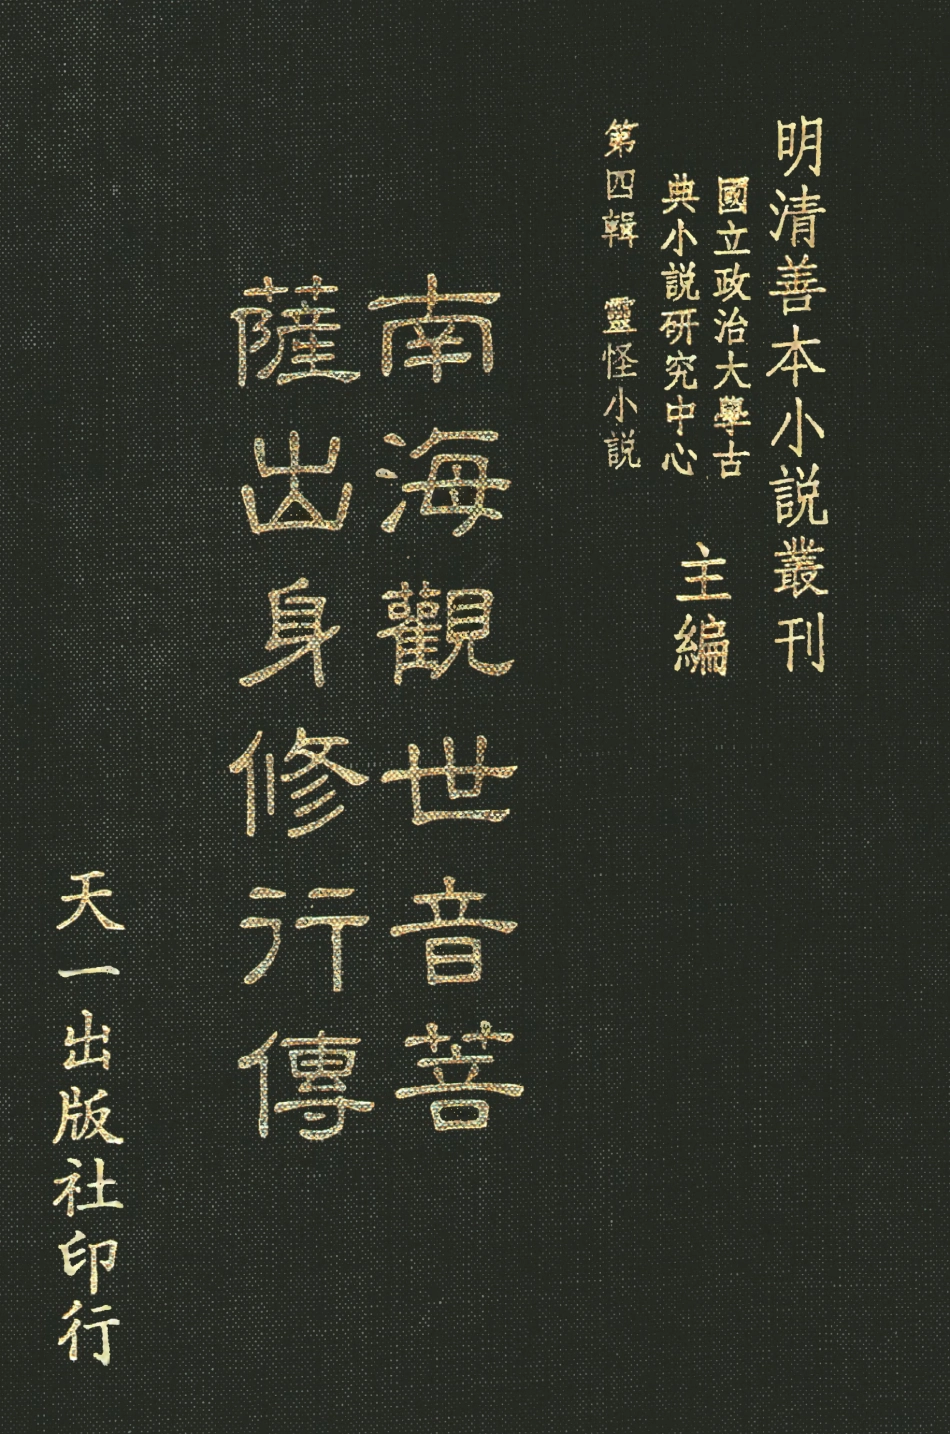 明清善本小説叢刊
國立政治大學古
典小説研究中心
主編
第四輯 靈怪小説
南海觀世音菩
薩出身修行傳
天一出版社印行